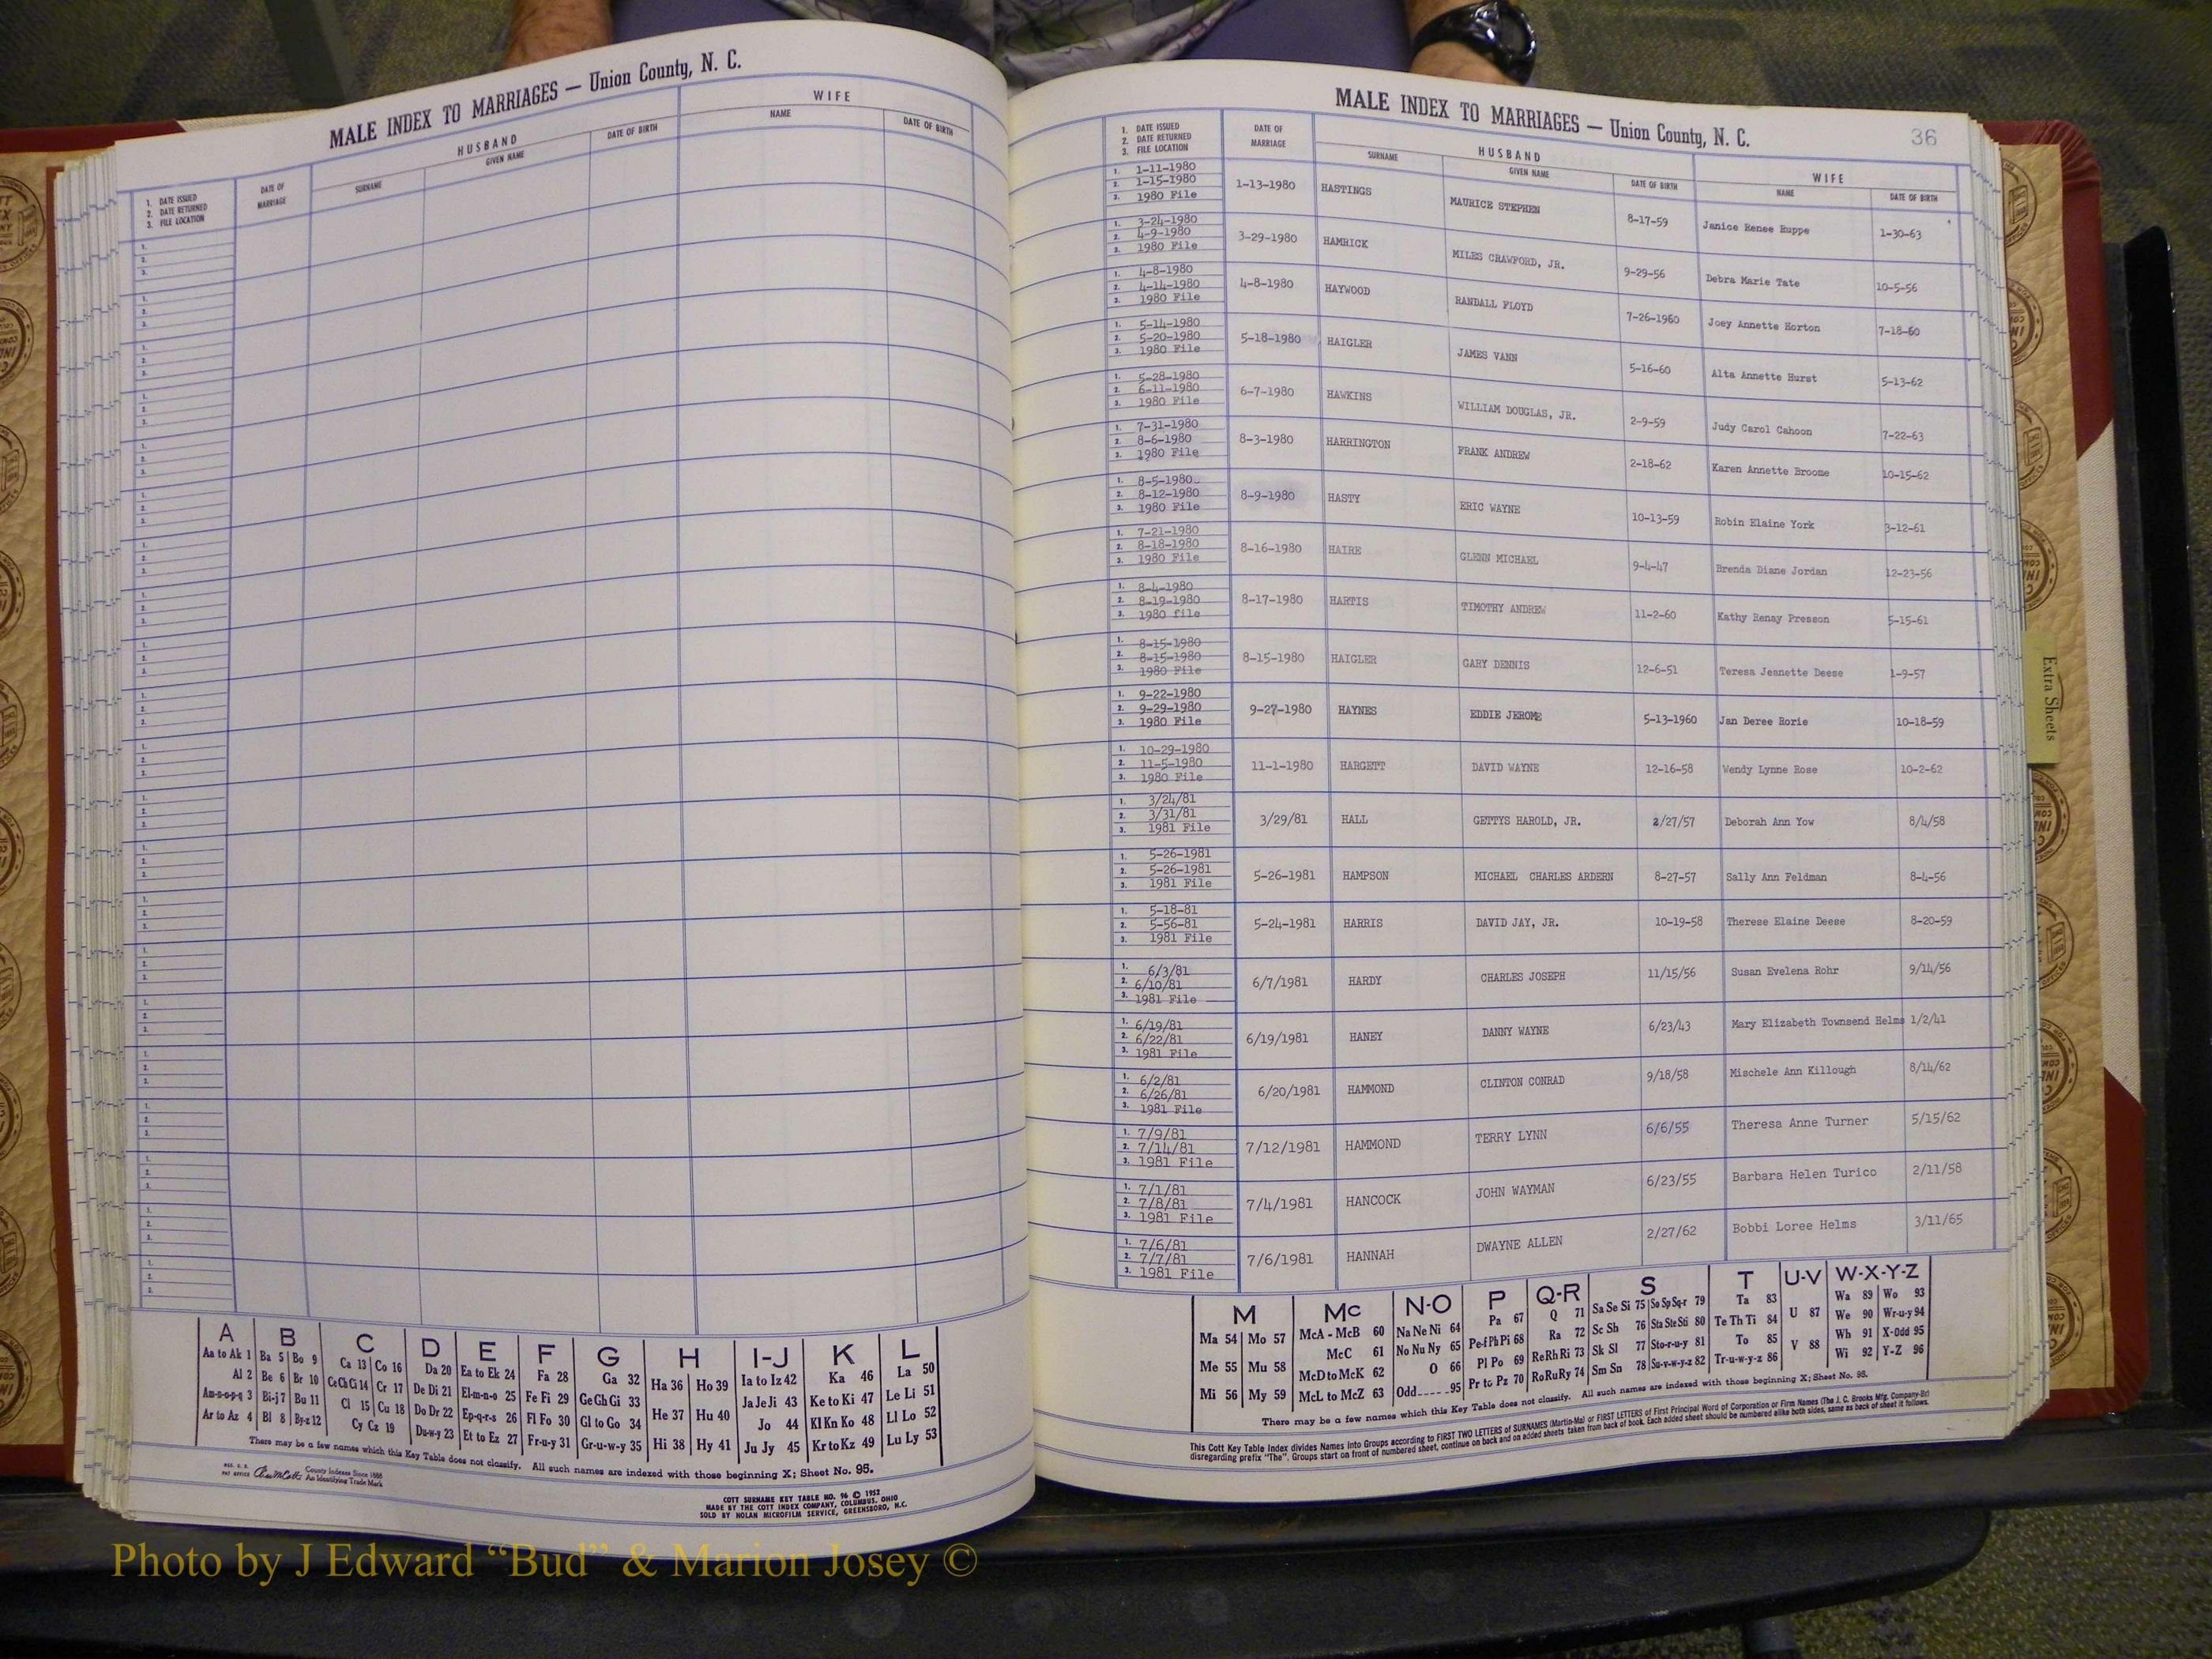 MALE INDEX TO MARRIAGES — Union County, N. C.
HUSBAND WIFE
1. DATE ISSUED
2. DATE RETURNED
3. FILE LOCATION
DATE OF MARRIAGE SURNAME GIVEN NAME DATE OF BIRTH NAME DATE OF BIRTH
A B C D E F G H I-J K L
Aa to Ak 1 Ba 5 Bo 9 Ca 13 Co 16 Da 20 Ea to Ek 24 Fa 28 Ga 32 Ha 36 Ho 39 Ia to Iz 42 Ka 46 La 50
Al 2 Be 6 Br 10 Ce Ch Ci 14 Cr 17 De Di 21 El-m-n-o 25 Fe Fi 29 Ge Gh Gi 33 He 37 Hu 40 Ja Je Ji 43 Ke to Ki 47 Le Li 51
Am-n-o-p-q 3 Bi-j 7 Bu 11 Cl 15 Cu 18 Do Dr 22 Ep-q-r-s 26 Fl Fo 30 Gl to Go 34 Hi 38 Hy 41 Jo 44 Kl Kn Ko 48 Ll Lo 52
Ar to Az 4 Bl 8 By-z 12 Cy Cz 19 Du-w-y 23 Et to Ez 27 Fr-u-y 31 Gr-u-w-y 35 Ju Jy 45 Kr to Kz 49 Lu Ly 53
There may be a few names which this Key Table does not classify. All such names are indexed with those beginning X; Sheet No. 95.
County Indexes Since 1888
An Identifying Trade Mark
COTT SURNAME KEY TABLE NO. 96 © 1952
MADE BY THE COTT INDEX COMPANY, COLUMBUS, OHIO
SOLD BY NOLAN MICROFILM SERVICE, GREENSBORO, N.C.
MALE INDEX TO MARRIAGES — Union County, N. C. 36
HUSBAND WIFE
1. DATE ISSUED
2. DATE RETURNED
3. FILE LOCATION
DATE OF MARRIAGE SURNAME GIVEN NAME DATE OF BIRTH NAME DATE OF BIRTH
1. 1-11-1980
2. 1-15-1980
3. 1980 File
1-13-1980 HASTINGS MAURICE STEPHEN 8-17-59 Janice Renee Ruppe 1-30-63
1. 3-24-1980
2. 4-9-1980
3. 1980 File
3-29-1980 HAMRICK MILES CRAWFORD, JR. 9-29-56 Debra Marie Tate 10-5-56
1. 4-8-1980
2. 4-14-1980
3. 1980 File
4-8-1980 HAYWOOD RANDALL FLOYD 7-26-1960 Joey Annette Horton 7-18-60
1. 5-14-1980
2. 5-20-1980
3. 1980 File
5-18-1980 HAIGLER JAMES VANN 5-16-60 Alta Annette Hurst 5-13-62
1. 5-28-1980
2. 6-11-1980
3. 1980 File
6-7-1980 HAWKINS WILLIAM DOUGLAS, JR. 2-9-59 Judy Carol Cahoon 7-22-63
1. 7-31-1980
2. 8-6-1980
3. 1980 File
8-3-1980 HARRINGTON FRANK ANDREW 2-18-62 Karen Annette Broome 10-15-62
1. 8-5-1980
2. 8-12-1980
3. 1980 File
8-9-1980 HASTY ERIC WAYNE 10-13-59 Robin Elaine York 3-12-61
1. 7-21-1980
2. 8-18-1980
3. 1980 File
8-16-1980 HAIRE GLENN MICHAEL 9-4-47 Brenda Diane Jordan 12-23-56
1. 8-4-1980
2. 8-19-1980
3. 1980 file
8-17-1980 HARTIS TIMOTHY ANDREW 11-2-60 Kathy Renay Presson 5-15-61
1. 8-15-1980
2. 8-15-1980
3. 1980 File
8-15-1980 HAIGLER GARY DENNIS 12-6-51 Teresa Jeanette Deese 1-9-57
1. 9-22-1980
2. 9-29-1980
3. 1980 File
9-27-1980 HAYNES EDDIE JEROME 5-13-1960 Jan Deree Rorie 10-18-59
1. 10-29-1980
2. 11-5-1980
3. 1980 File
11-1-1980 HARGETT DAVID WAYNE 12-16-58 Wendy Lynne Rose 10-2-62
1. 3/24/81
2. 3/31/81
3. 1981 File
3/29/81 HALL GETTYS HAROLD, JR. 2/27/57 Deborah Ann Yow 8/4/58
1. 5-26-1981
2. 5-26-1981
3. 1981 File
5-26-1981 HAMPSON MICHAEL CHARLES ARDERN 8-27-57 Sally Ann Feldman 8-4-56
1. 5-18-81
2. 5-56-81
3. 1981 File
5-24-1981 HARRIS DAVID JAY, JR. 10-19-58 Therese Elaine Deese 8-20-59
1. 6/3/81
2. 6/10/81
3. 1981 File
6/7/1981 HARDY CHARLES JOSEPH 11/15/56 Susan Evelena Rohr 9/14/56
1. 6/19/81
2. 6/22/81
3. 1981 File
6/19/1981 HANEY DANNY WAYNE 6/23/43 Mary Elizabeth Townsend Helms 1/2/41
1. 6/2/81
2. 6/26/81
3. 1981 File
6/20/1981 HAMMOND CLINTON CONRAD 9/18/58 Mischele Ann Killough 8/14/62
1. 7/9/81
2. 7/14/81
3. 1981 File
7/12/1981 HAMMOND TERRY LYNN 6/6/55 Theresa Anne Turner 5/15/62
1. 7/1/81
2. 7/8/81
3. 1981 File
7/4/1981 HANCOCK JOHN WAYMAN 6/23/55 Barbara Helen Turico 2/11/58
1. 7/6/81
2. 7/7/81
3. 1981 File
7/6/1981 HANNAH DWAYNE ALLEN 2/27/62 Bobbi Loree Helms 3/11/65
M Mc N-O P Q-R S T U-V W-X-Y-Z
Ma 54 Mo 57 McA - McB 60 Na Ne Ni 64 Pa 67 Q 71 Sa Se Si 75 So Sp Sq-r 79 Ta 83 U 87 Wa 89 Wo 93
Me 55 Mu 58 McC 61 No Nu Ny 65 Pe-f Ph Pi 68 Ra 72 Sc Sh 76 Sta Ste Sti 80 Te Th Ti 84 V 88 We 90 Wr-u-y 94
Mi 56 My 59 McD to McK 62 O 66 Pl Po 69 Re Rh Ri 73 Sk Sl 77 Sto-r-u-y 81 To 85 Wh 91 X-Odd 95
McL to McZ 63 Odd 95 Pr to Pz 70 Ro Ru Ry 74 Sm Sn 78 Su-v-w-y-z 82 Tr-u-w-y-z 86 Wi 92 Y-Z 96
There may be a few names which this Key Table does not classify. All such names are indexed with those beginning X; Sheet No. 95.
This Cott Key Table Index divides Names into Groups according to FIRST TWO LETTERS of SURNAMES (Martin-Ma) or FIRST LETTERS of First Principal Word of Corporation or Firm Names (The J. C. Brooks Mfg. Company-Br)
disregarding prefix "The". Groups start on front of numbered sheet, continue on back and on added sheets taken from back of book. Each added sheet should be numbered alike both sides, same as back of sheet it follows.
Extra Sheets
Photo by J Edward “Bud” & Marion Josey ©